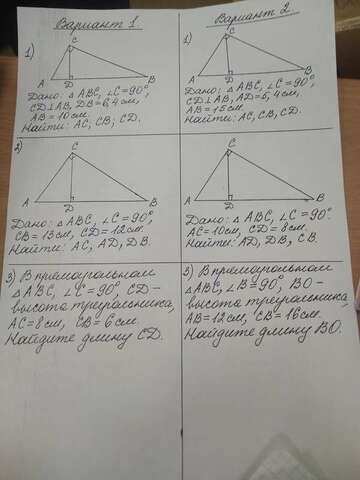 Вариант 1
1)
C
A
D
B
Дано: △ ABC, ∠C = 90°,
CD⊥AB, DB = 6,4 см,
AB = 10 см.
Найти: AC, CB, CD.
2)
C
A
D
B
Дано: △ ABC, ∠C = 90°,
CB = 13 см, CD = 12 см.
Найти: AC, AD, DB.
3) В прямоугольном
△ ABC, ∠C = 90°, CD –
высота треугольника,
AC = 8 см, CB = 6 см.
Найдите длину CD.
Вариант 2
1)
C
A
D
B
Дано: △ ABC, ∠C = 90°,
CD⊥AB, AD = 5,4 см,
AB = 15 см.
Найти: AC, CB, CD.
C
A
D
B
Дано: △ ABC, ∠C = 90°.
AC = 10 см, CD = 8 см.
Найти: AD, DB, CB.
3) В прямоугольном
△ABC, ∠B = 90°, BO –
высота треугольника,
AB = 12 см, CB = 16 см.
Найдите длину BO.